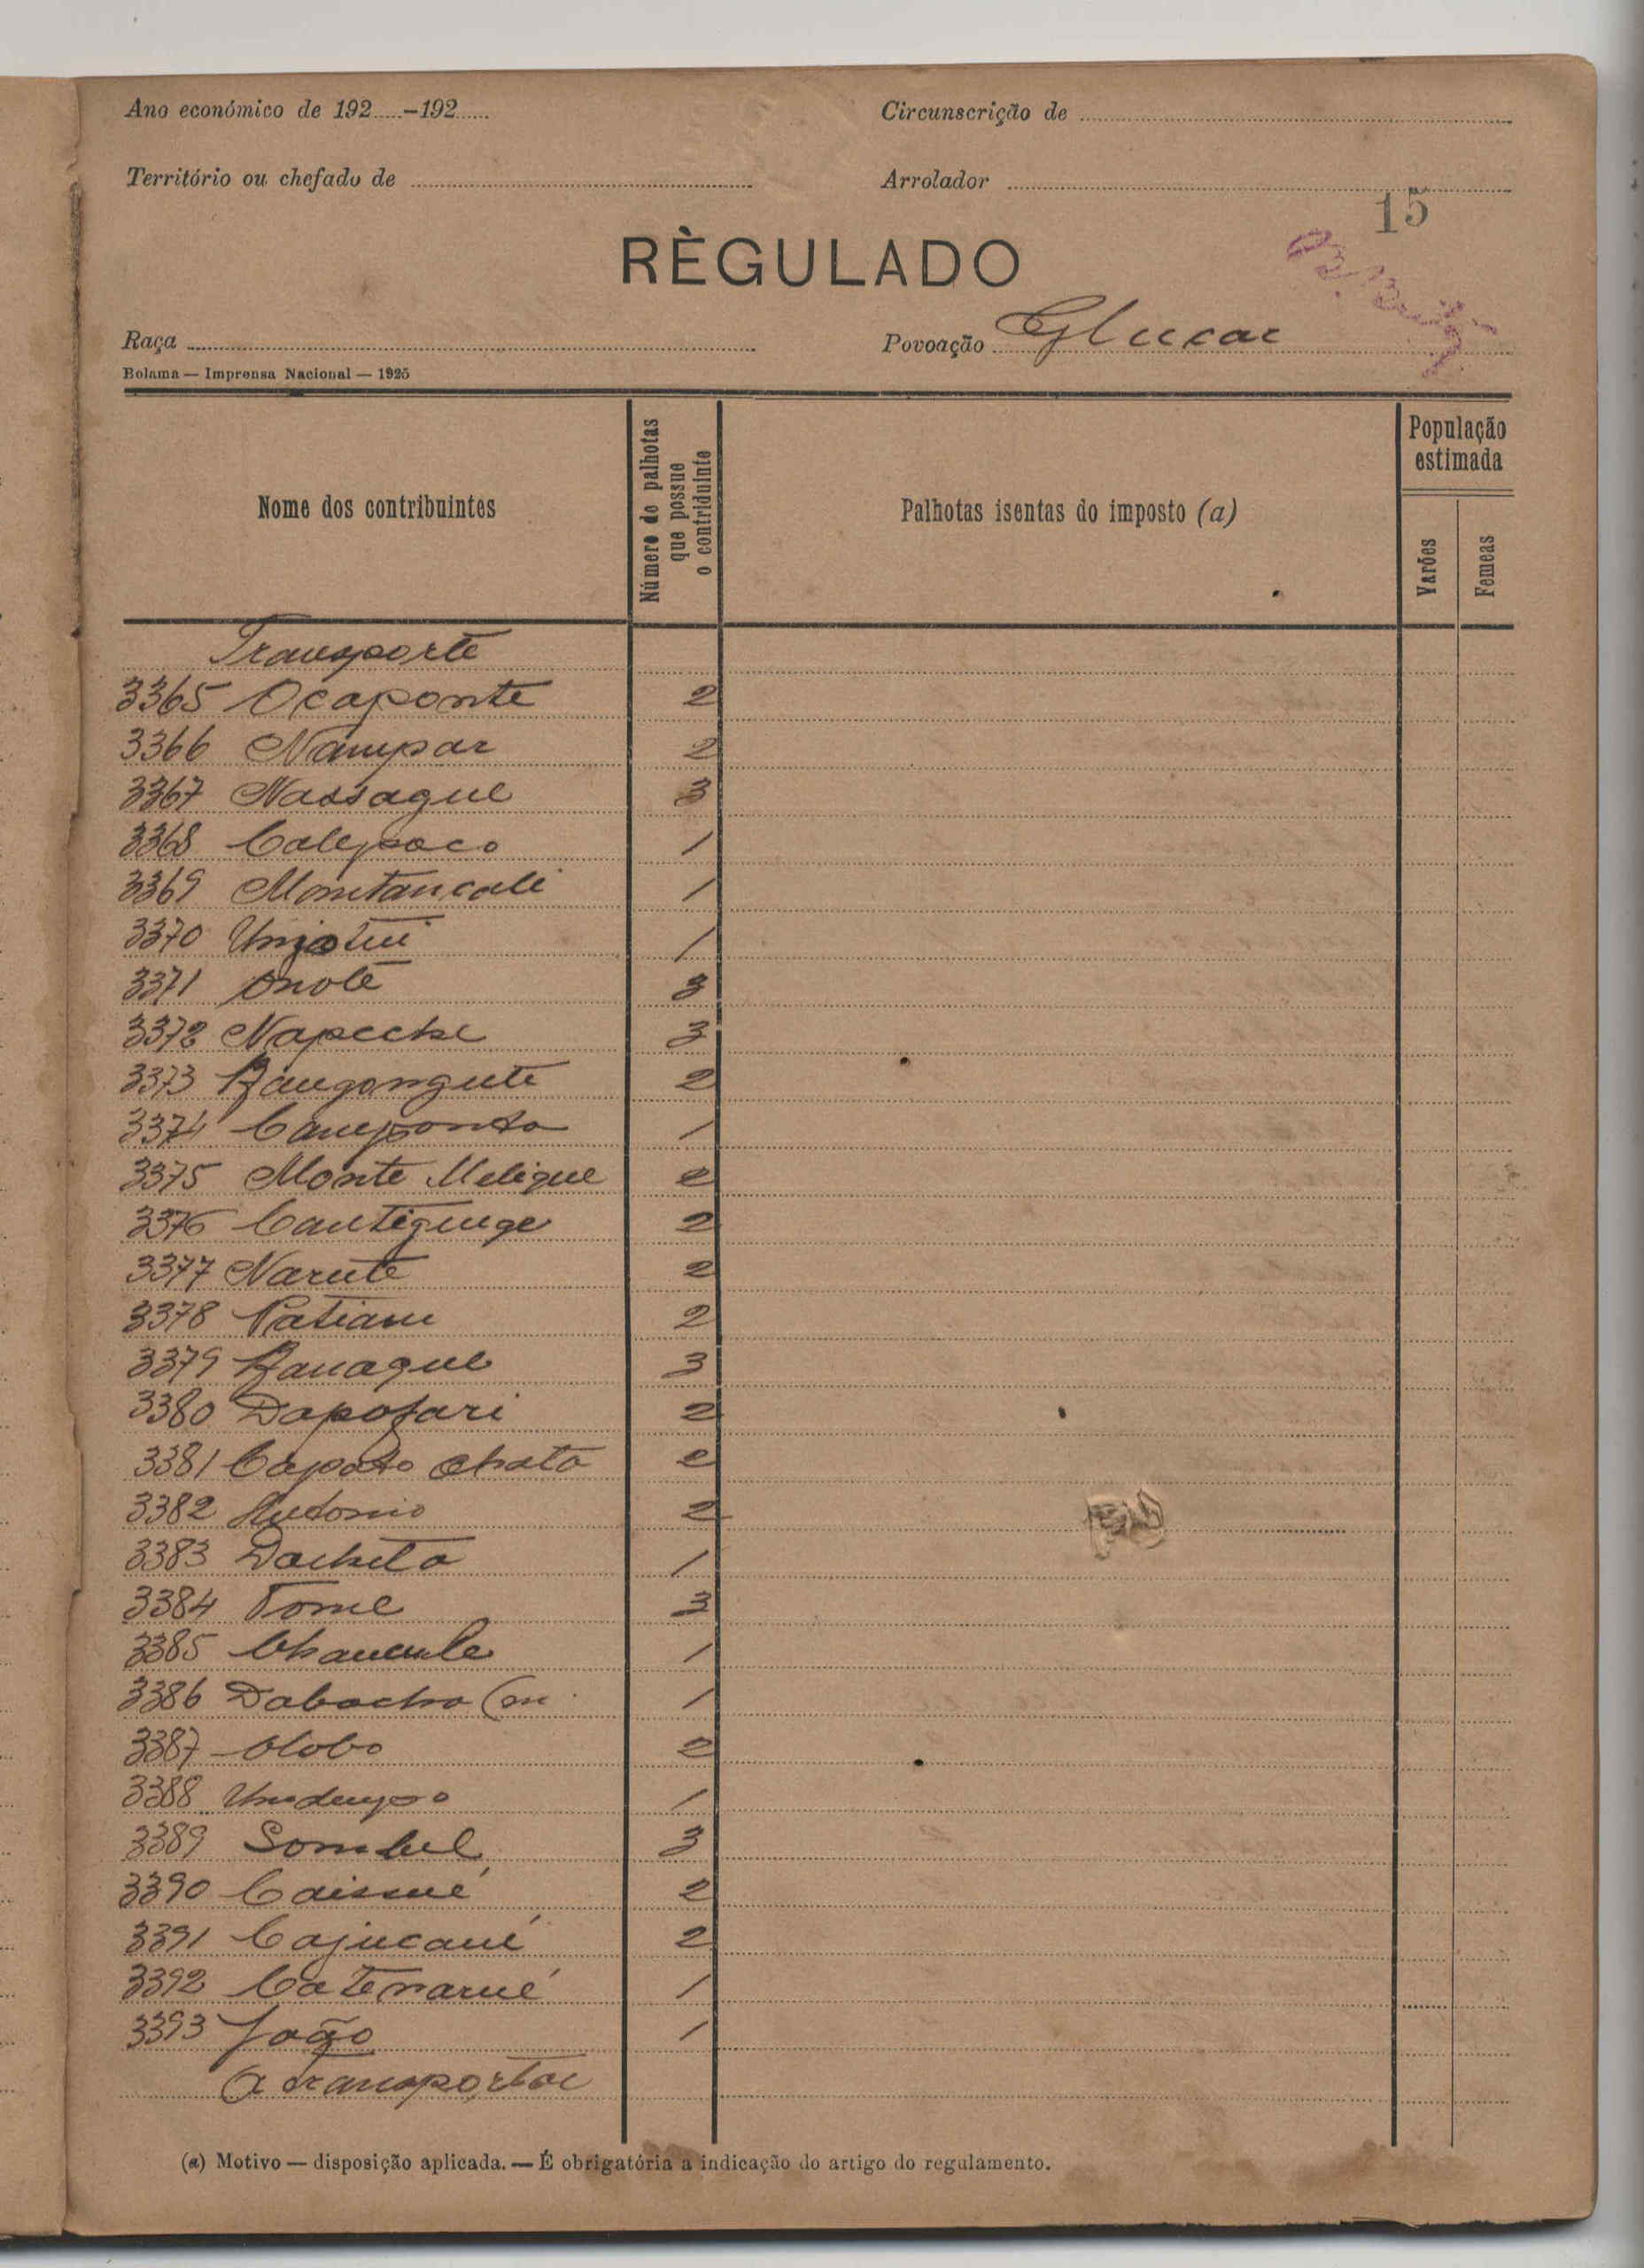 Ano económico de 192.....–192.....
Circunscrição de
Território ou chefado de
Arrolador
15
RÈGULADO
Raça
Povoação Glucar
Bolama — Imprensa Nacional — 1925
Nome dos contribuintes
Número de palhotas que possue o contriduinte
Palhotas isentas do imposto (a)
População estimada
Varões
Femeas
Transporte
3365 Ocaponte 2
3366 Nampar 2
3367 Nassague 3
3368 Calepaco 1
3369 Montancali 1
3370 1
3371 Onote 3
3372 Napeche 3
3373 2
3374 Camponta 1
3375 Monte Melique 2
3376 2
3377 Narute 2
3378 2
3379 3
3380 Dapofari 2
3381 Capato Chato 2
3382 Antonio 2
3383 Dacheta 1
3384 Tome 3
3385 1
3386 Dabacho 1
3387 Olobo 2
3388 1
3389 Sombel 3
3390 2
3391 Cajucaué 2
3392 Catenarué 1
3393 João 1
A transportar
(a) Motivo — disposição aplicada. — É obrigatória a indicação do artigo do regulamento.